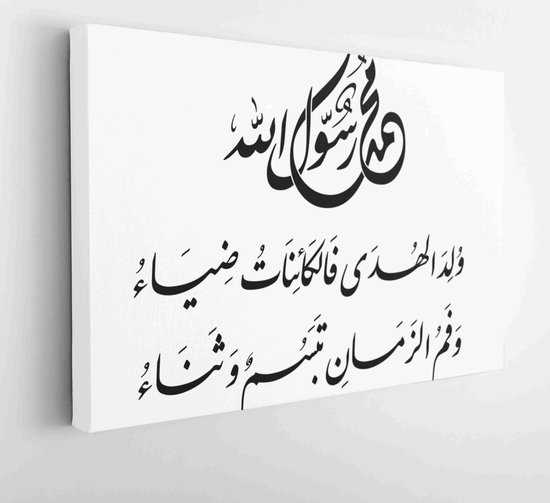 محمد رسول الله
وُلِدَ الهُدَى فَالكَائِنَاتُ ضِيَاءُ
وَفَمُ الزَمَانِ تَبَسُمٌ وَثَنَاءُ